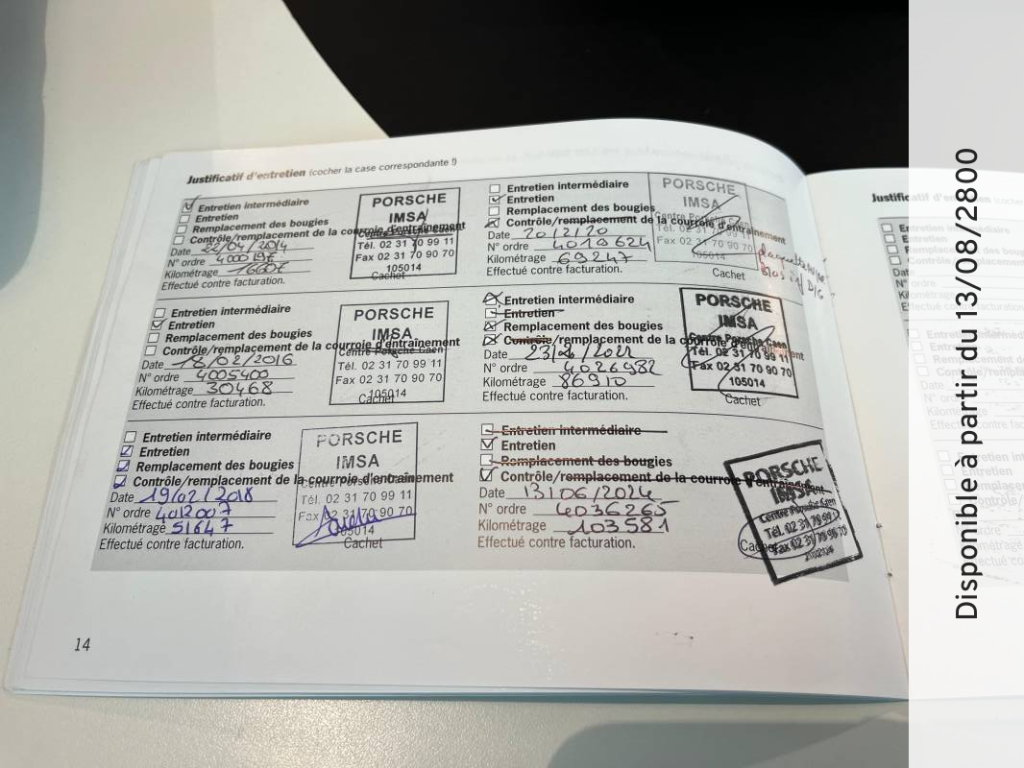 Justificatif d'entretien (cocher la case correspondante !)
Entretien intermédiaire
Entretien
Remplacement des bougies
Contrôle/remplacement de la courroie d'entraînement
Date /04/2014
N° ordre
Kilométrage
Effectué contre facturation.
PORSCHE
IMSA
Centre Porsche Caen
Tél. 02 31 70 99 11
Fax 02 31 70 90 70
105014
Cachet
Entretien intermédiaire
Entretien
Remplacement des bougies
Contrôle/remplacement de la courroie d'entraînement
Date 18/02/2016
N° ordre 4005400
Kilométrage 30468
Effectué contre facturation.
PORSCHE
IMSA
Centre Porsche Caen
Tél. 02 31 70 99 11
Fax 02 31 70 90 70
105014
Cachet
Entretien intermédiaire
Entretien
Remplacement des bougies
Contrôle/remplacement de la courroie d'entraînement
Date 19/02/2018
N° ordre 4012007
Kilométrage 51647
Effectué contre facturation.
PORSCHE
IMSA
Centre Porsche Caen
Tél. 02 31 70 99 11
Fax 02 31 70 90 70
105014
Cachet
14
Entretien intermédiaire
Entretien
Remplacement des bougies
Contrôle/remplacement de la courroie d'entraînement
Date 20/2/20
N° ordre 4019624
Kilométrage 69247
Effectué contre facturation.
PORSCHE
IMSA
Centre Porsche Caen
Tél. 02 31 70 99 11
Fax 02 31 70 90 70
105014
Cachet
Entretien intermédiaire
Entretien
Remplacement des bougies
Contrôle/remplacement de la courroie d'entraînement
Date
N° ordre 4026982
Kilométrage 86910
Effectué contre facturation.
PORSCHE
IMSA
Centre Porsche Caen
Tél. 02 31 70 99 11
Fax 02 31 70 90 70
105014
Cachet
Entretien intermédiaire
Entretien
Remplacement des bougies
Contrôle/remplacement de la courroie d'entraînement
Date 13/06/2024
N° ordre 4036265
Kilométrage 103581
Effectué contre facturation.
PORSCHE
IMSA
Centre Porsche Caen
Tél. 02 31 70 99 11
Fax 02 31 70 90 70
Cachet
Justificatif d'entretien (cocher
Disponible à partir du 13/08/2800